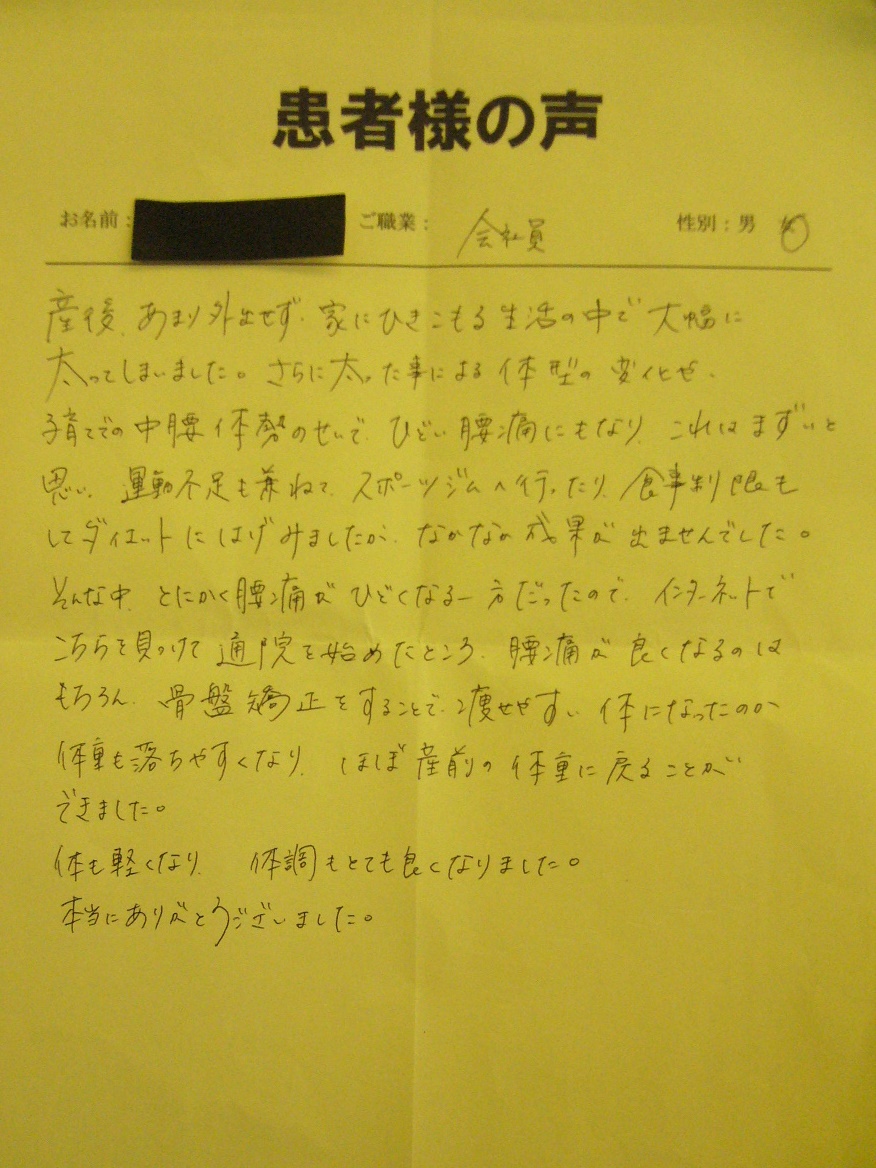 患者様の声
お名前： ご職業： 会社員 性別：男 女
産後、あまり外出せず、家にひきこもる生活の中で大幅に
太ってしまいました。さらに太った事による体型の変化や、
子育てでの中腰体勢のせいで、ひどい腰痛にもなり、これはまずいと
思い、運動不足も兼ねて、スポーツジムへ行ったり、食事制限も
してダイエットにはげみましたが、なかなか成果が出ませんでした。
そんな中、とにかく腰痛がひどくなる一方だったので、インターネットで
こちらを見つけて通院を始めたところ、腰痛が良くなるのは
もちろん、骨盤矯正をすることで、痩せやすい体になったのか
体重も落ちやすくなり、ほぼ産前の体重に戻ることが
できました。
体も軽くなり、体調もとても良くなりました。
本当にありがとうございました。